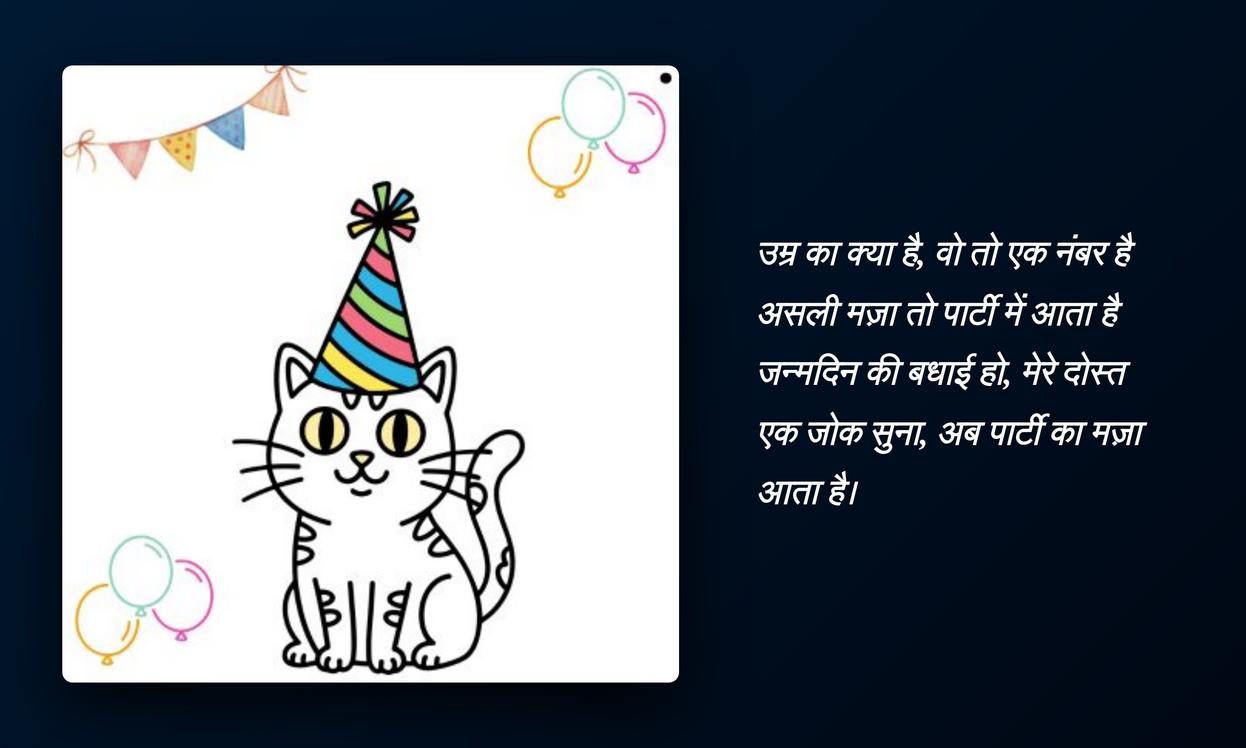 उम्र का क्या है, वो तो एक नंबर है
असली मज़ा तो पार्टी में आता है
जन्मदिन की बधाई हो, मेरे दोस्त
एक जोक सुना, अब पार्टी का मज़ा
आता है।